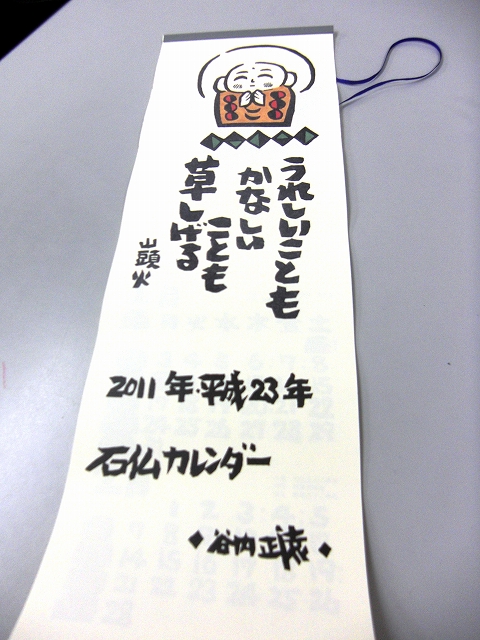 うれしいことも
かなしい
ことも
草しげる
山頭火
2011年・平成23年
石仏カレンダー
◆谷内正遠◆